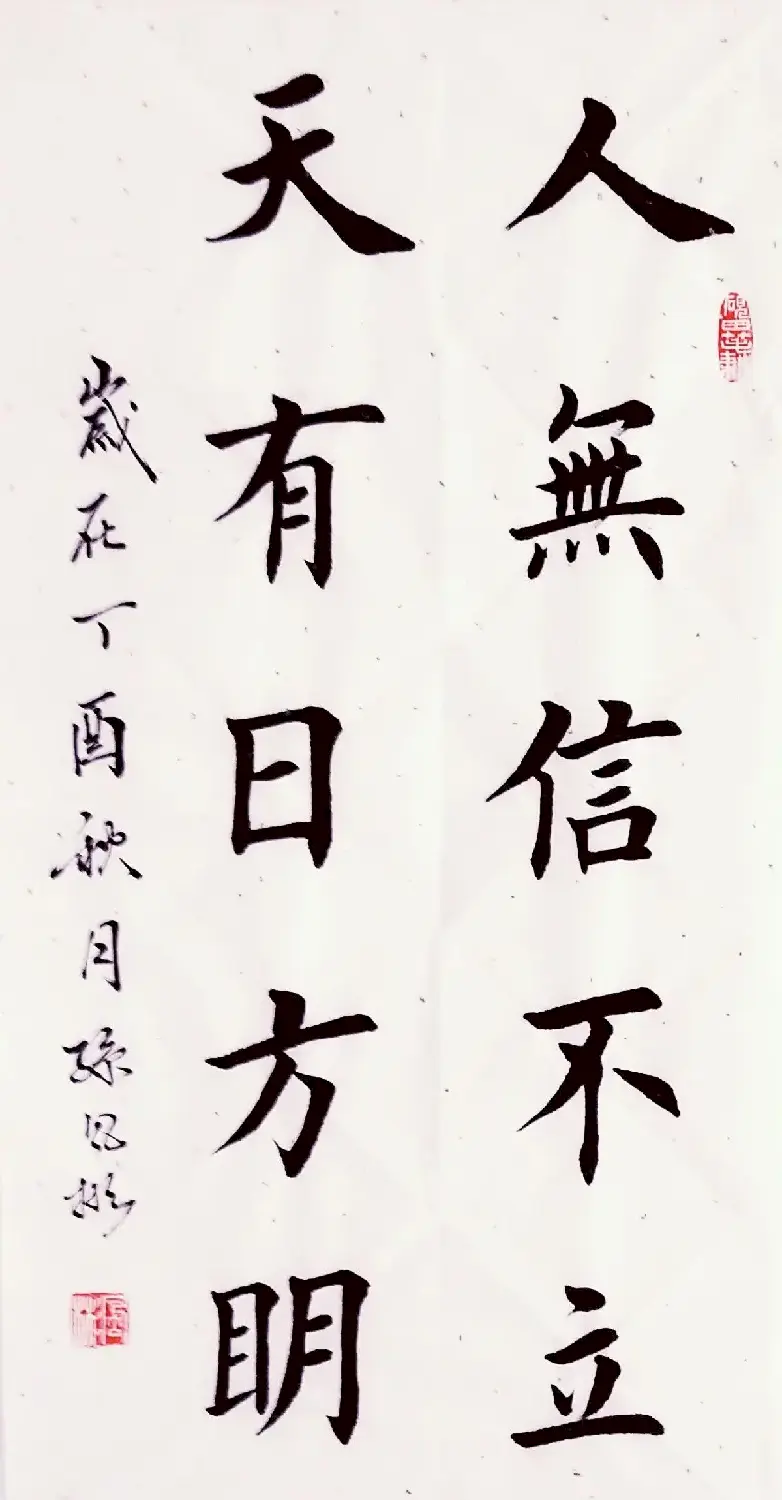 人無信不立
天有日方明
歲在丁酉秋月孫